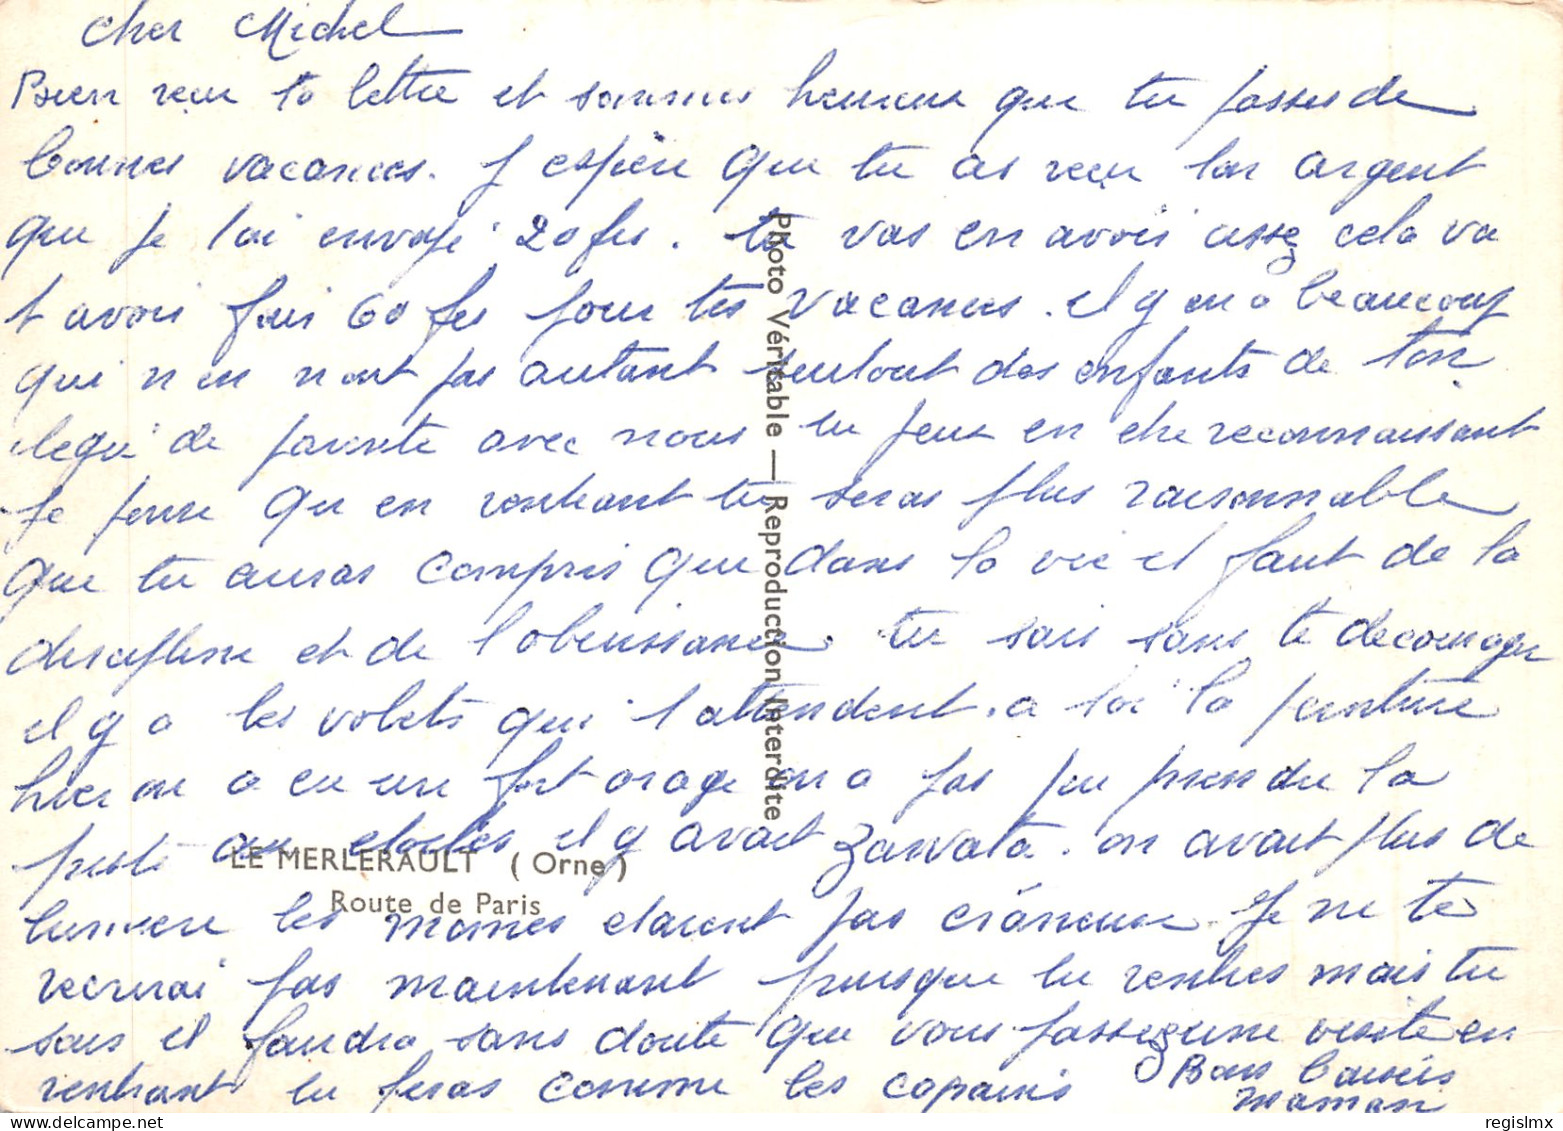 Cher Michel
Bien reçu ta lettre et sommes heureux que tu passes de
bonnes vacances. J espère que tu as reçu ton argent
que je t'ai envoyé 20 frs. tu vas en avoir assez cela va
t avoir fais 60 frs pour tes vacances. il y en a beaucoup
qui n en n'ont pas autant surtout des enfants de ton
age de pointe avec nous tu peux en etre reconnaissant
Je pense qu en rentrant tu seras plus raisonnable
que tu auras compris que dans la vie il faut de la
discipline et de l obeissance tu sais sans te decourager
il y a les volets qui t attendent. a toi la peinture
hier on a eu un fort orage on a pas pu prendre la
piste aux etoiles il y avait Zavata. on avait plus de
lumiere les mômes etaient pas crâneux. Je ne te
recrirai pas maintenant puisque tu rentres mais tu
sais il faudra sans doute que vous passez une visite en
rentrant tu feras comme les copains
Bons baisers
Maman
Photo Véritable — Reproduction Interdite
LE MERLERAULT (Orne)
Route de Paris
© regislmx